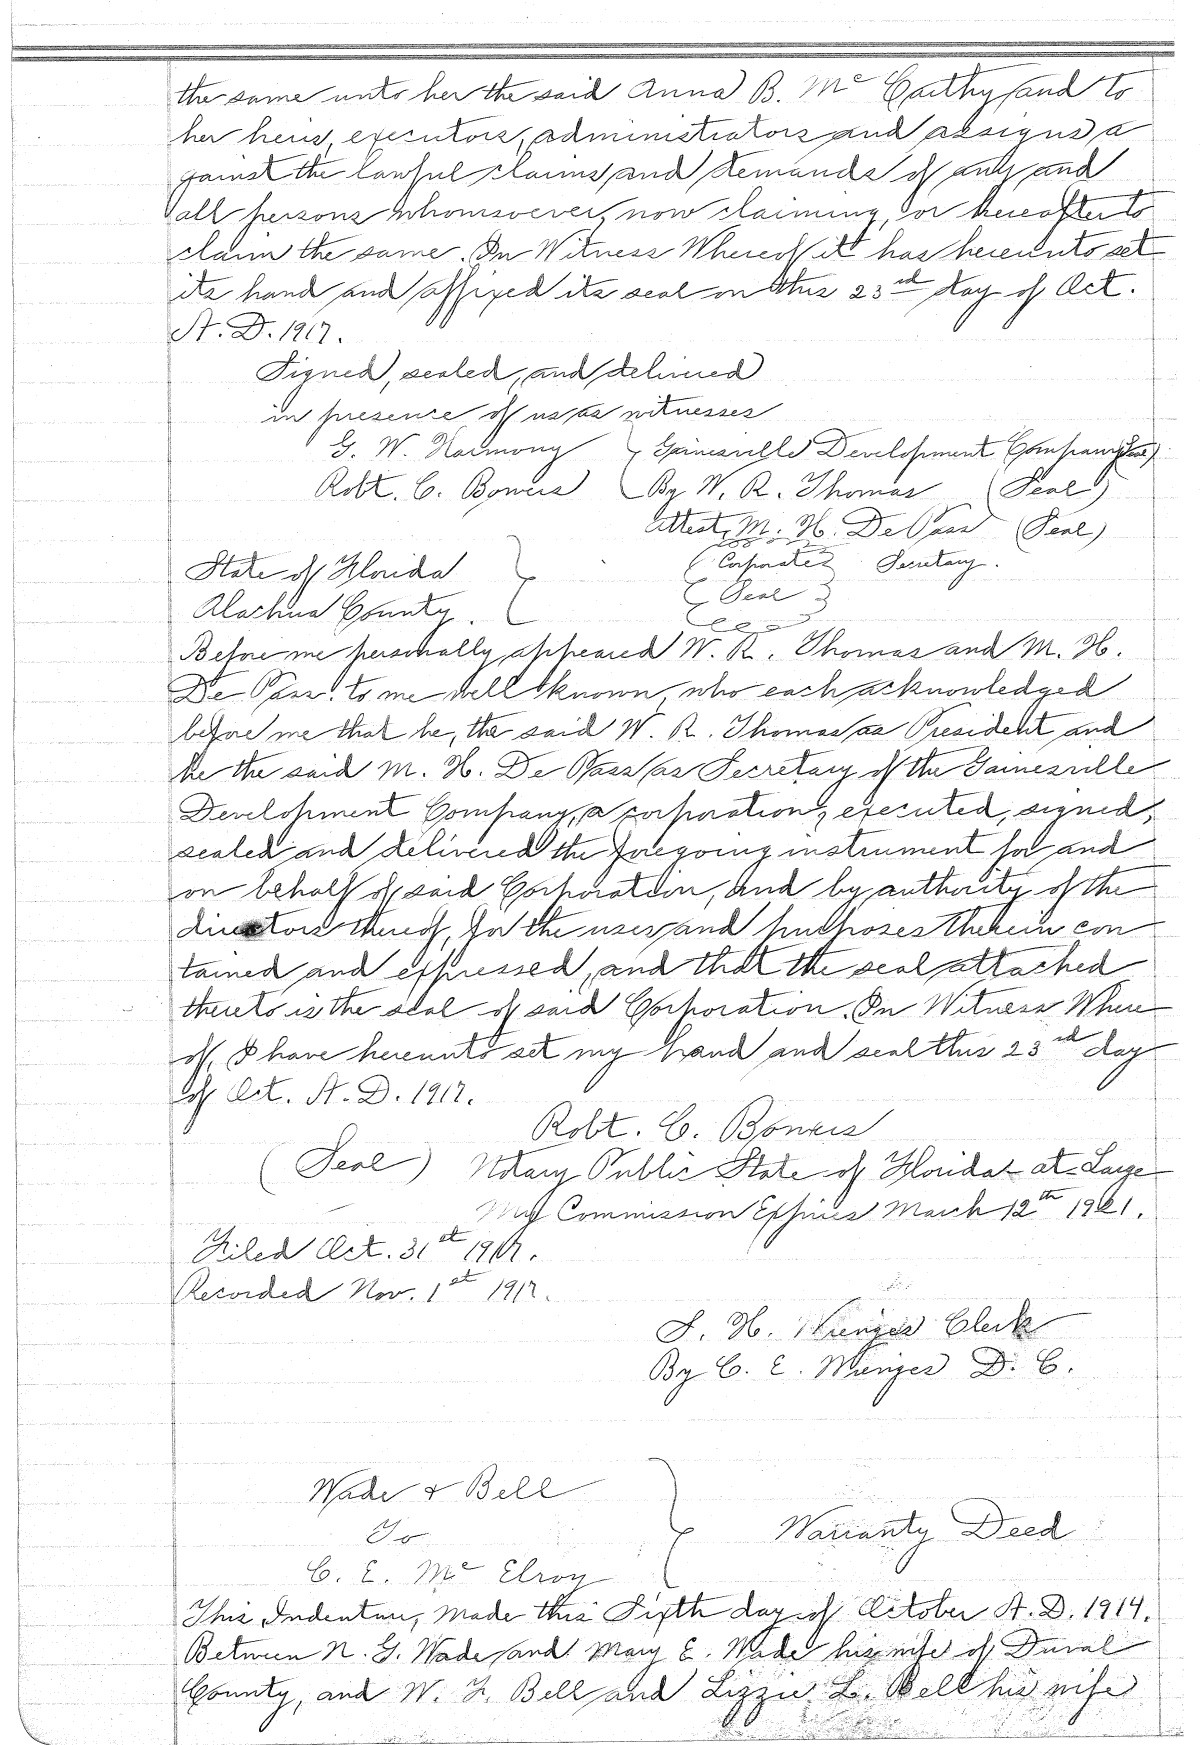 the same unto her the said Anna B. Mc Carthy and to
her heirs, executors, administrators and assigns a
gainst the lawful claims and demands of any and
all persons whomsoever, now claiming, or hereafter to
claim the same. In Witness Whereof it has hereunto set
its hand and affixed its seal on this 23rd day of Oct.
A. D. 1917.
Signed, sealed, and delivered
in presence of us as witnesses
G. W. Harmony Gainesville Development Company (Seal)
Robt. C. Bowers By W. R. Thomas (Seal)
Attest, M. H. De Pass (Seal)
State of Florida (Corporate) Secretary.
Alachua County. Seal
Before me personally appeared W. R. Thomas and M. H.
De Pass, to me well known, who each acknowledged
before me that he, the said W. R. Thomas as President and
he the said M. H. De Pass as Secretary of the Gainesville
Development Company, a corporation, executed, signed,
sealed and delivered the foregoing instrument for and
on behalf of said Corporation, and by authority of the
directors thereof, for the uses and purposes therein con
tained and expressed, and that the seal attached
thereto is the seal of said Corporation. In Witness Where
of, I have hereunto set my hand and seal this 23rd day
of Oct. A. D. 1917.
Robt. C. Bowers
(Seal) Notary Public State of Florida at Large
My Commission Expires March 12th 1921.
Filed Oct. 31st 1917.
Recorded Nov. 1st 1917.
S. H. Wienges Clerk
By C. E. Wienges D. C.
Wade & Bell
To Warranty Deed
C. E. Mc Elroy
This Indenture, Made this Sixth day of October A. D. 1914.
Between N. G. Wade and Mary E. Wade his wife of Duval
County, and W. F. Bell and Lizzie L. Bell his wife